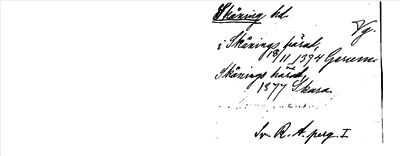 Skåning hd.
Vg.
i Skånings härad,
13/11 1394 Gerum
Skånings härad,
1377 Skara
Sv. R. A. perg. I